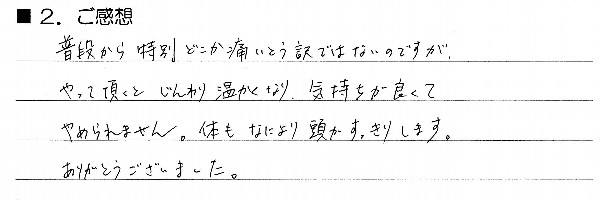 ■ 2. ご感想
普段から特別どこか痛いとう訳ではないのですが、
やって頂くと じんわり温かくなり、気持ちが良くて
やめられません。体も なにより頭がすっきりします。
ありがとうございました。